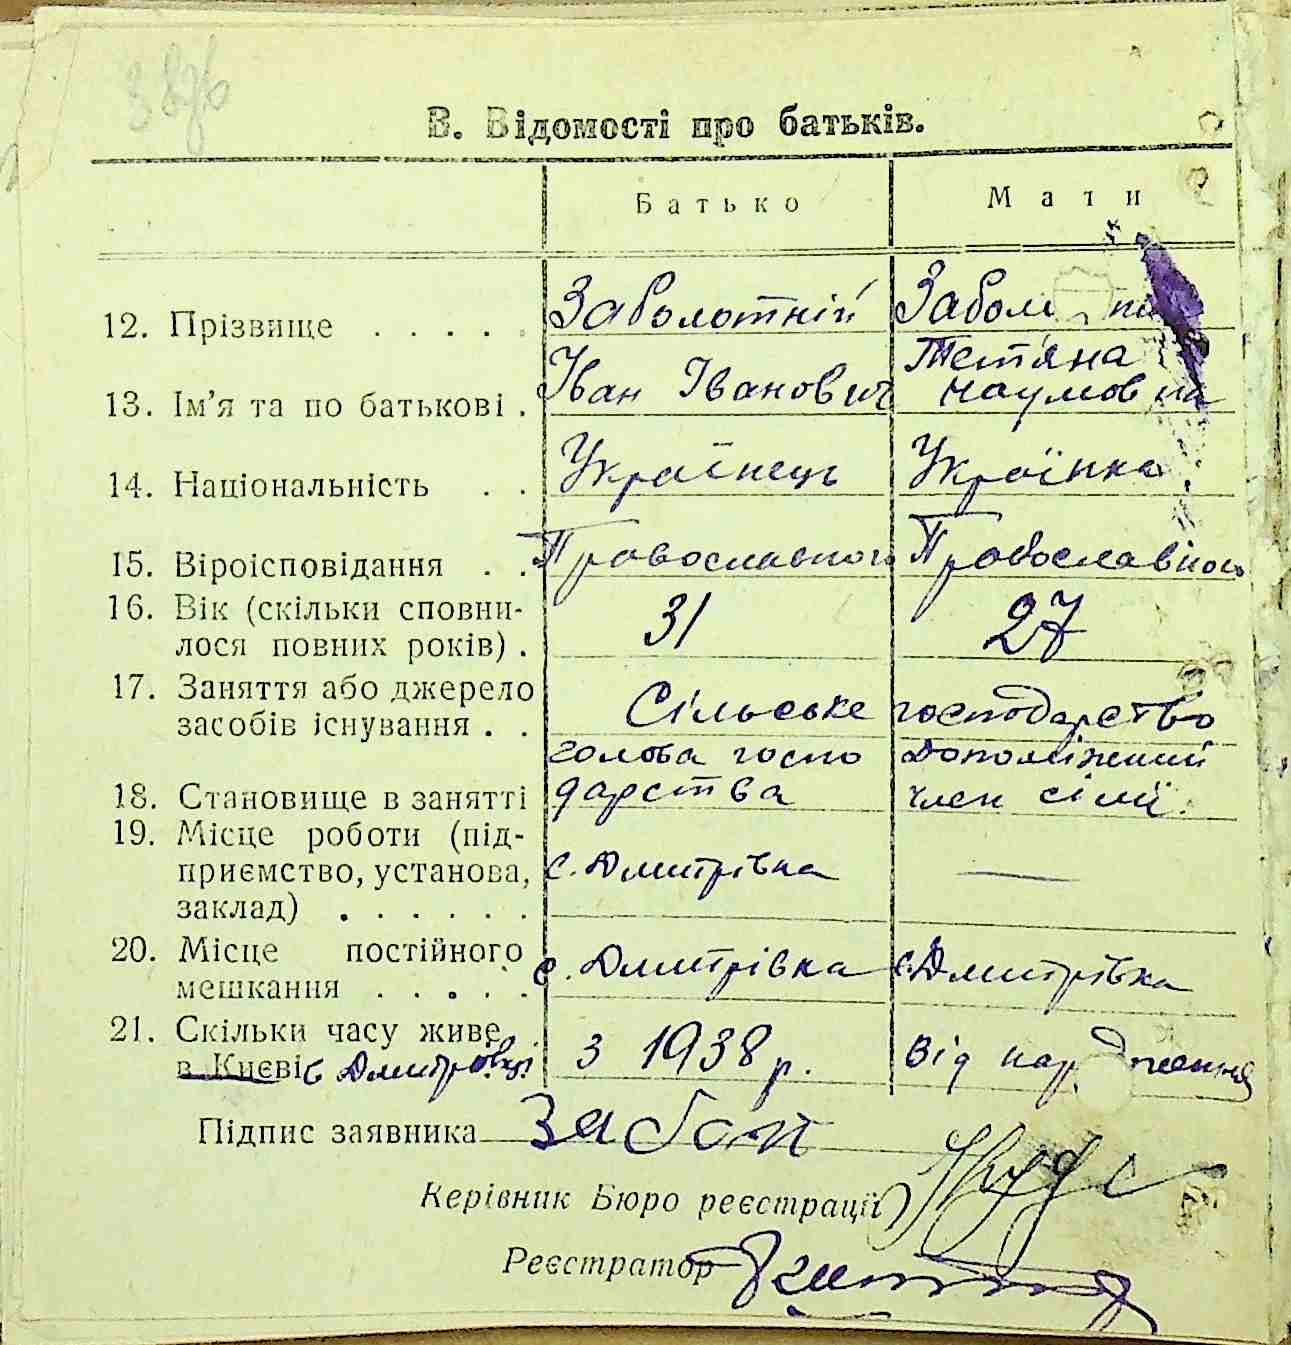 В. Відомості про батьків.
Батько Мати
12. Прізвище . . . . . Заболотній
13. Ім'я та по батькові . Іван Іванович Тетяна Наумовна
14. Національність . . Українець Українка
15. Віроісповідання . . Православного Православного
16. Вік (скільки сповни-
лося повних років) . 31 27
17. Заняття або джерело
засобів існування . . Сільське господарство
18. Становище в занятті голова господарства допоміжний член сімї.
19. Місце роботи (під-
приємство, установа, с. Дмитрівка —
заклад) . . . . . .
20. Місце постійного
мешкання . . . . . с. Дмитрівка с. Дмитрівка
21. Скільки часу живе
в Києві с Дмитровці з 1938 р. від народження
Підпис заявника Забол
Керівник Бюро реєстрації
Реєстратор